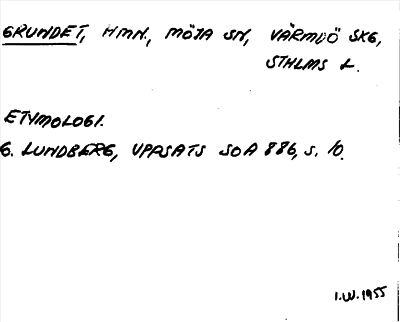 GRUNDET, HMN., MÖJA SN, VÄRMDÖ SKG,
STHLMS L.
ETYMOLOGI.
G. LUNDBERG, UPPSATS SOA 886, S. 10.
I.W. 1955